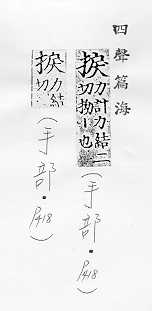 四聲篇海
捩力計力結二
切拗也
(手部.P418)
捩力結
切
(手部.P418)